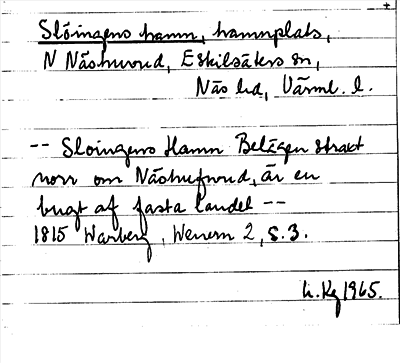 Slöingens hamn, hamnplats,
N Näshuvud, Eskilsäters sn,
Näs hd, Värml. l.
-- Sloingens Hamn Belägen strax
norr om Näshufwud, är en
bugt af fasta landet --
1815 Warberg, Wenern 2, s. 3.
1965.